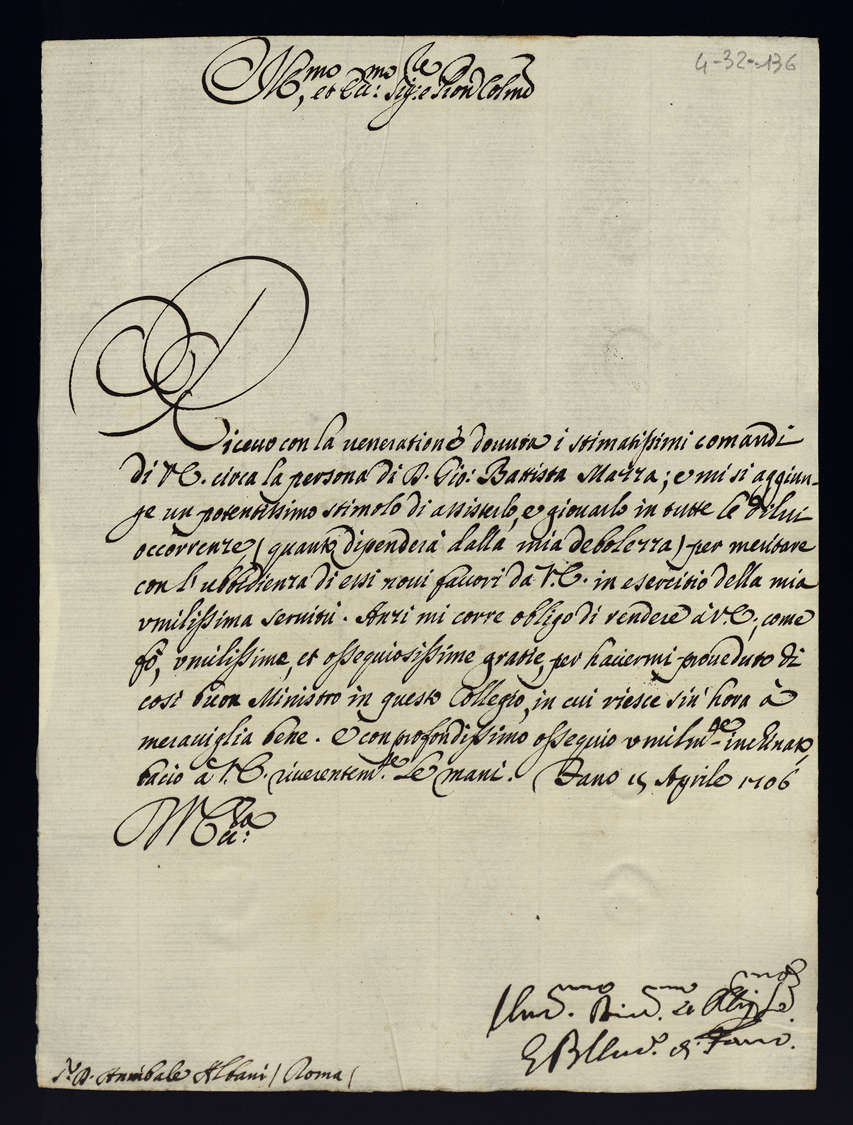 Ill.mo, et Ecc.mo Sig.re Pron Colmo
4-32-136
Riceuo con la ueneratione douuta i stimatissimi comandi
di V.E. circa la persona di D. Gio: Battista Mazza; e mi si aggiun-
ge un potentissimo stimolo di assisterlo, e giouarlo in tutte le di lui
occorrenze (quanto dipenderà dalla mia debolezza) per meritare
con l'ubbidienza di essi noui fauori da V.E. in esercitio della mia
vmilissima seruitù. Anzi mi corre obligo di rendere à V.E., come
fò, vmilissime, et ossequiosissime gratie, per hauermi proueduto di
così buon Ministro in questo Collegio, in cui riesce sin' hora à
merauiglia bene. E con profondissimo ossequio vmilm.te inclinato,
bacio à V.E. riuerentem.te le mani. Fano 15 Aprile 1706
V.E.
Vmil.mo Diu.mo et Oblig.mo Se.
di Fano.
S.r D. Annibale Albani / Roma /